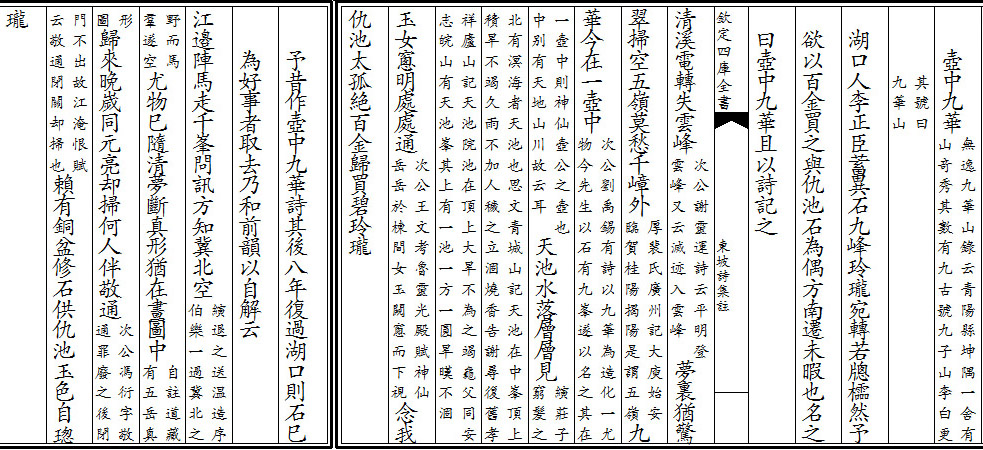 壺中九華 無逸九華山錄云青陽縣坤隅一舍有山奇秀其數有九古號九子山李白更
其號曰九華山
湖口人李正臣蓄異石九峰玲瓏宛轉若牕櫺然予
欲以百金買之與仇池石為偶方南遷未暇也名之
曰壺中九華且以詩記之
欽定四庫全書 東坡詩集註
清溪電轉失雲峰 次公謝靈運詩云平明登雲峰又云滅迹入雲峰 夢裏猶驚
翠掃空五嶺莫愁千嶂外 厚裴氏廣州記大庾始安臨賀桂陽揭陽是謂五嶺 九
華今在一壺中 次公劉禹錫有詩以九華為造化一尤物今先生以石有九峯遂以名之其在
一壺中則神仙壺公之壺也中别有天地山川故云耳 天池水落層層見 縯莊子窮髮之
北有溟海者天池也思文青城山記天池在中峯頂上積旱不竭久雨不加人穢之立涸燒香告謝尋復舊孝
祥廬山記天池院池在頂上大旱不為之竭龜父同安志皖山有天池峯其上有一池一方一圓旱暵不涸
玉女窻明處處通 次公王文考魯靈光殿賦神仙岳岳於棟間女玉闚窻而下視 念我
仇池太孤絕百金歸買碧玲瓏
予昔作壺中九華詩其後八年復過湖口則石已
為好事者取去乃和前韻以自解云
江邊陣馬走千峯問訊方知冀北空 縯退之送温造序伯樂一過冀北之
野而馬羣遂空 尤物已隨清夢斷真形猶在畫圖中 自註道藏有五岳真
形圖 歸來晚歲同元亮却掃何人伴敬通 次公馮衍字敬通罪廢之後閉
門不出故江淹恨賦云敬通閉關却掃也 賴有銅盆修石供仇池玉色自璁
瓏